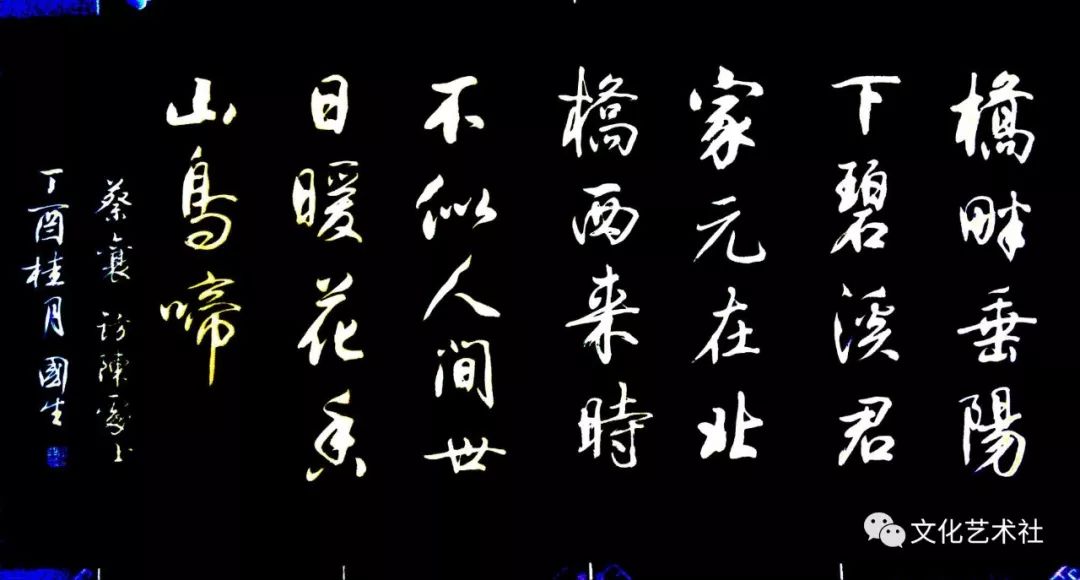 橋畔垂陽
下碧溪君
家元在北
橋西来時
不似人間世
日暖花香
山鳥啼
蔡襄 訪陳處士
丁酉桂月 國生
文化艺术社